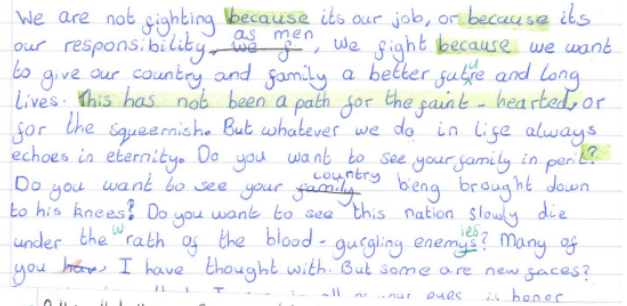 We are not fighting because its our job, or because its
our responsibility, we f as men, we fight because we want
to give our country and family a better future and long
lives. This has not been a path for the faint-hearted, or
for the squeemish. But whatever we do in life always
echoes in eternity. Do you want to see your family in peril?
Do you want to see your family country bieng brought down
to his knees? Do you want to see this nation slowly die
under the wrath of the blood-gurgling enemys ies? Many of
you have, I have thought with. But some are new faces?
eyes is honer